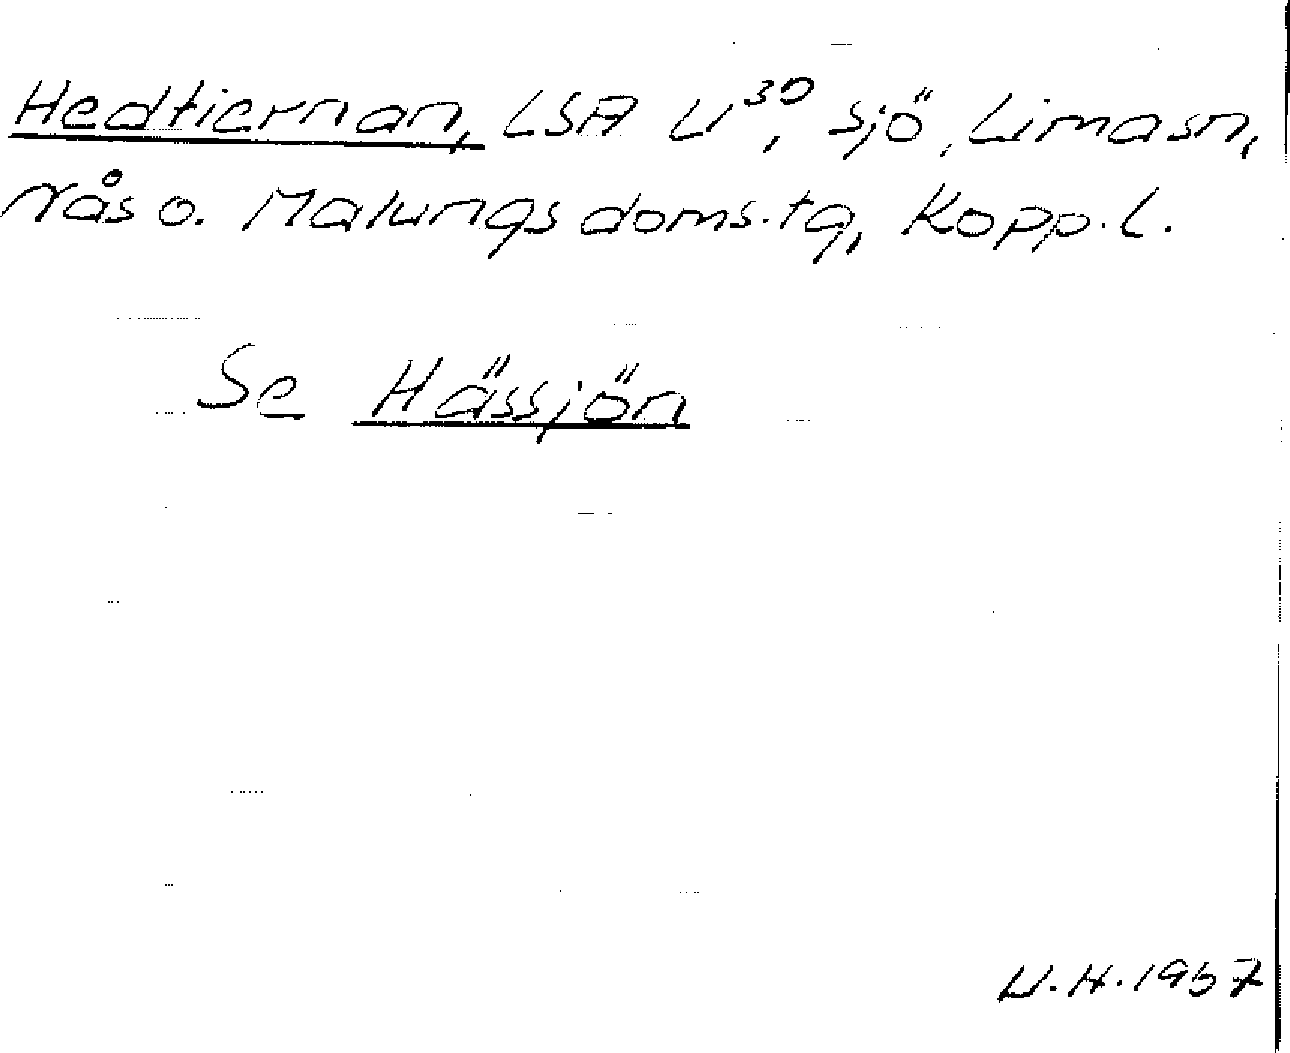 Hedtiernan, LSA U³⁰, sjö, Lima sn,
Nås o. Malungs doms.tg, Kopp.l.
Se Hässjön
U.H. 1957